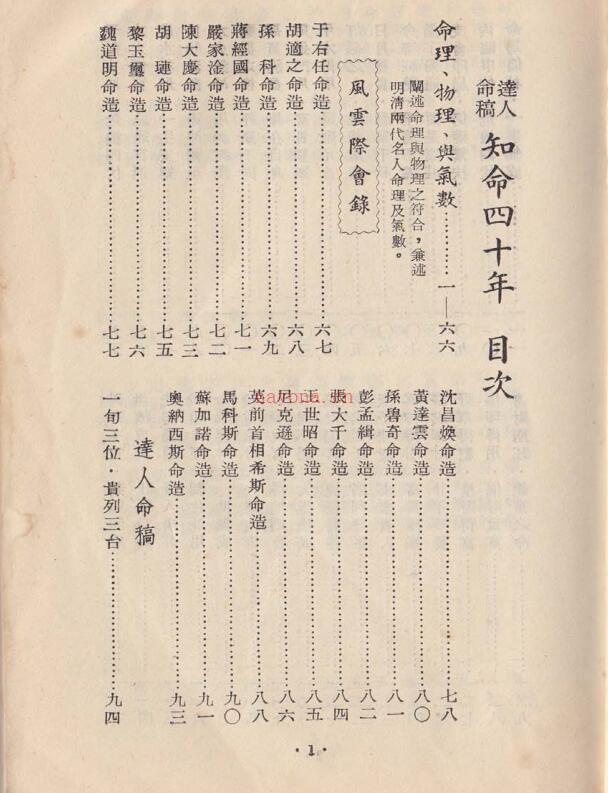 達人命稿 知命四十年 目次
命理、物理、與氣數…………一—六六
闡述命理與物理之符合，兼述
明清兩代名人命理及氣數。
風雲際會錄
于右任命造…………六七
胡適之命造…………六八
孫 科命造…………六九
蔣經國命造…………七一
嚴家淦命造…………七二
陳大慶命造…………七三
胡 璉命造…………七五
黎玉璽命造…………七六
魏道明命造…………七七
沈昌煥命造…………七八
黃達雲命造…………八〇
孫碧奇命造…………八一
彭孟緝命造…………八二
張大千命造…………八四
王世昭命造…………八五
尼克遜命造…………八六
英前首相希斯命造…………八八
馬科斯命造…………九〇
蘇加諾命造…………九一
奧納西斯命造…………九三
達人命稿
一旬三位．貴列三台…………九四
·1·